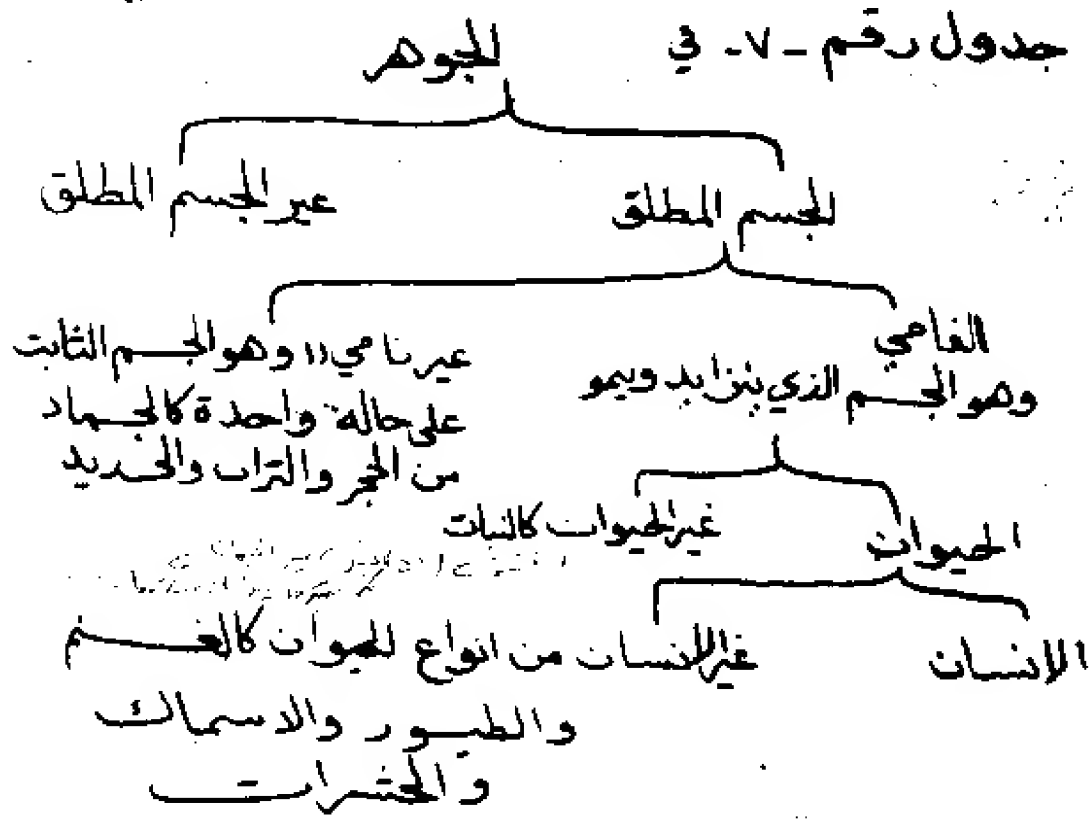 جدول رقم - ٧ - في
الجوهر
الجسم المطلق
غير الجسم المطلق
النامي
وهو الجسم الذي يتزايد وينمو
غير نامي)) وهو الجسم الثابت
على حالة واحدة كالجماد
من الحجر والتراب والحديد
الحيوان
غير الحيوان كالنبات
الانسان
غير الانسان من انواع الحيوان كالغنم
والطيور والاسماك
والحشرات